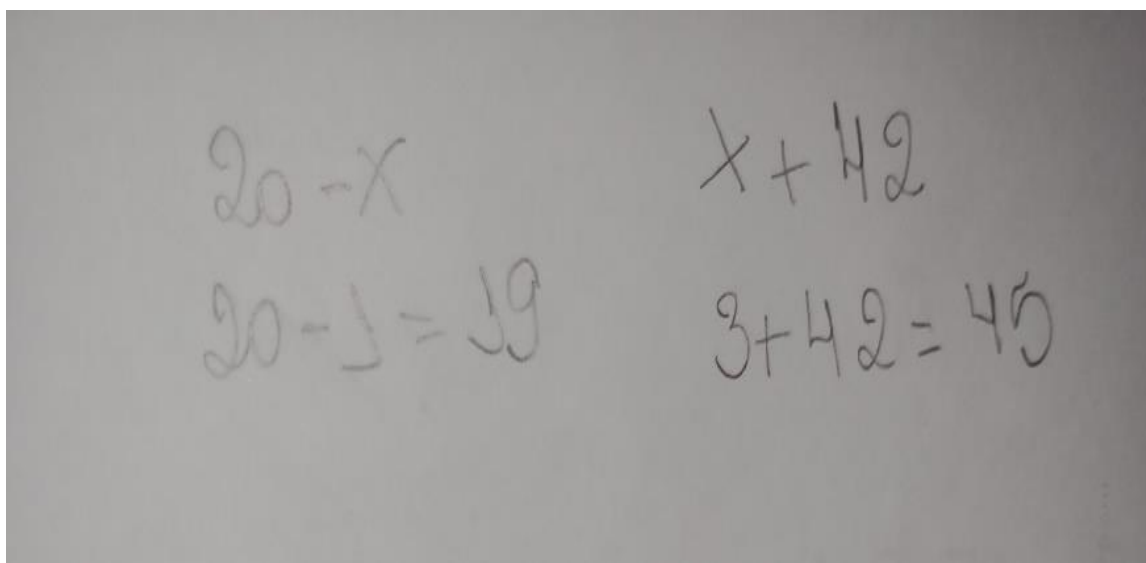 20 - x
20 - 1 = 19
x + 42
3 + 42 = 45